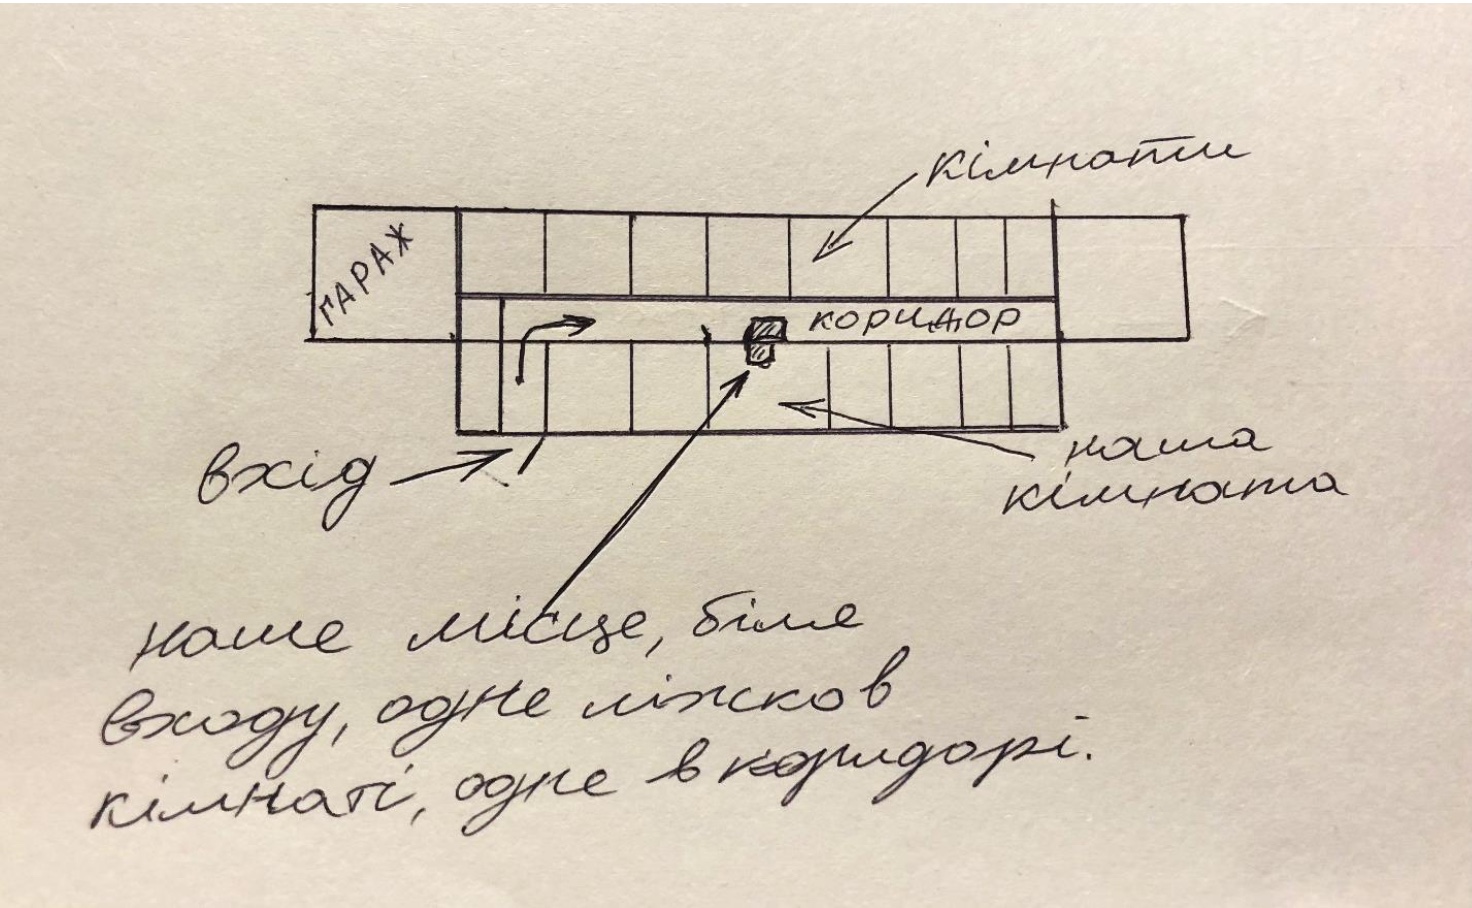 кімнати
ГАРАЖ
коридор
вхід
наша
кімната
наше місце, біля
входу, одне ліжко в
кімнаті, одне в коридорі.